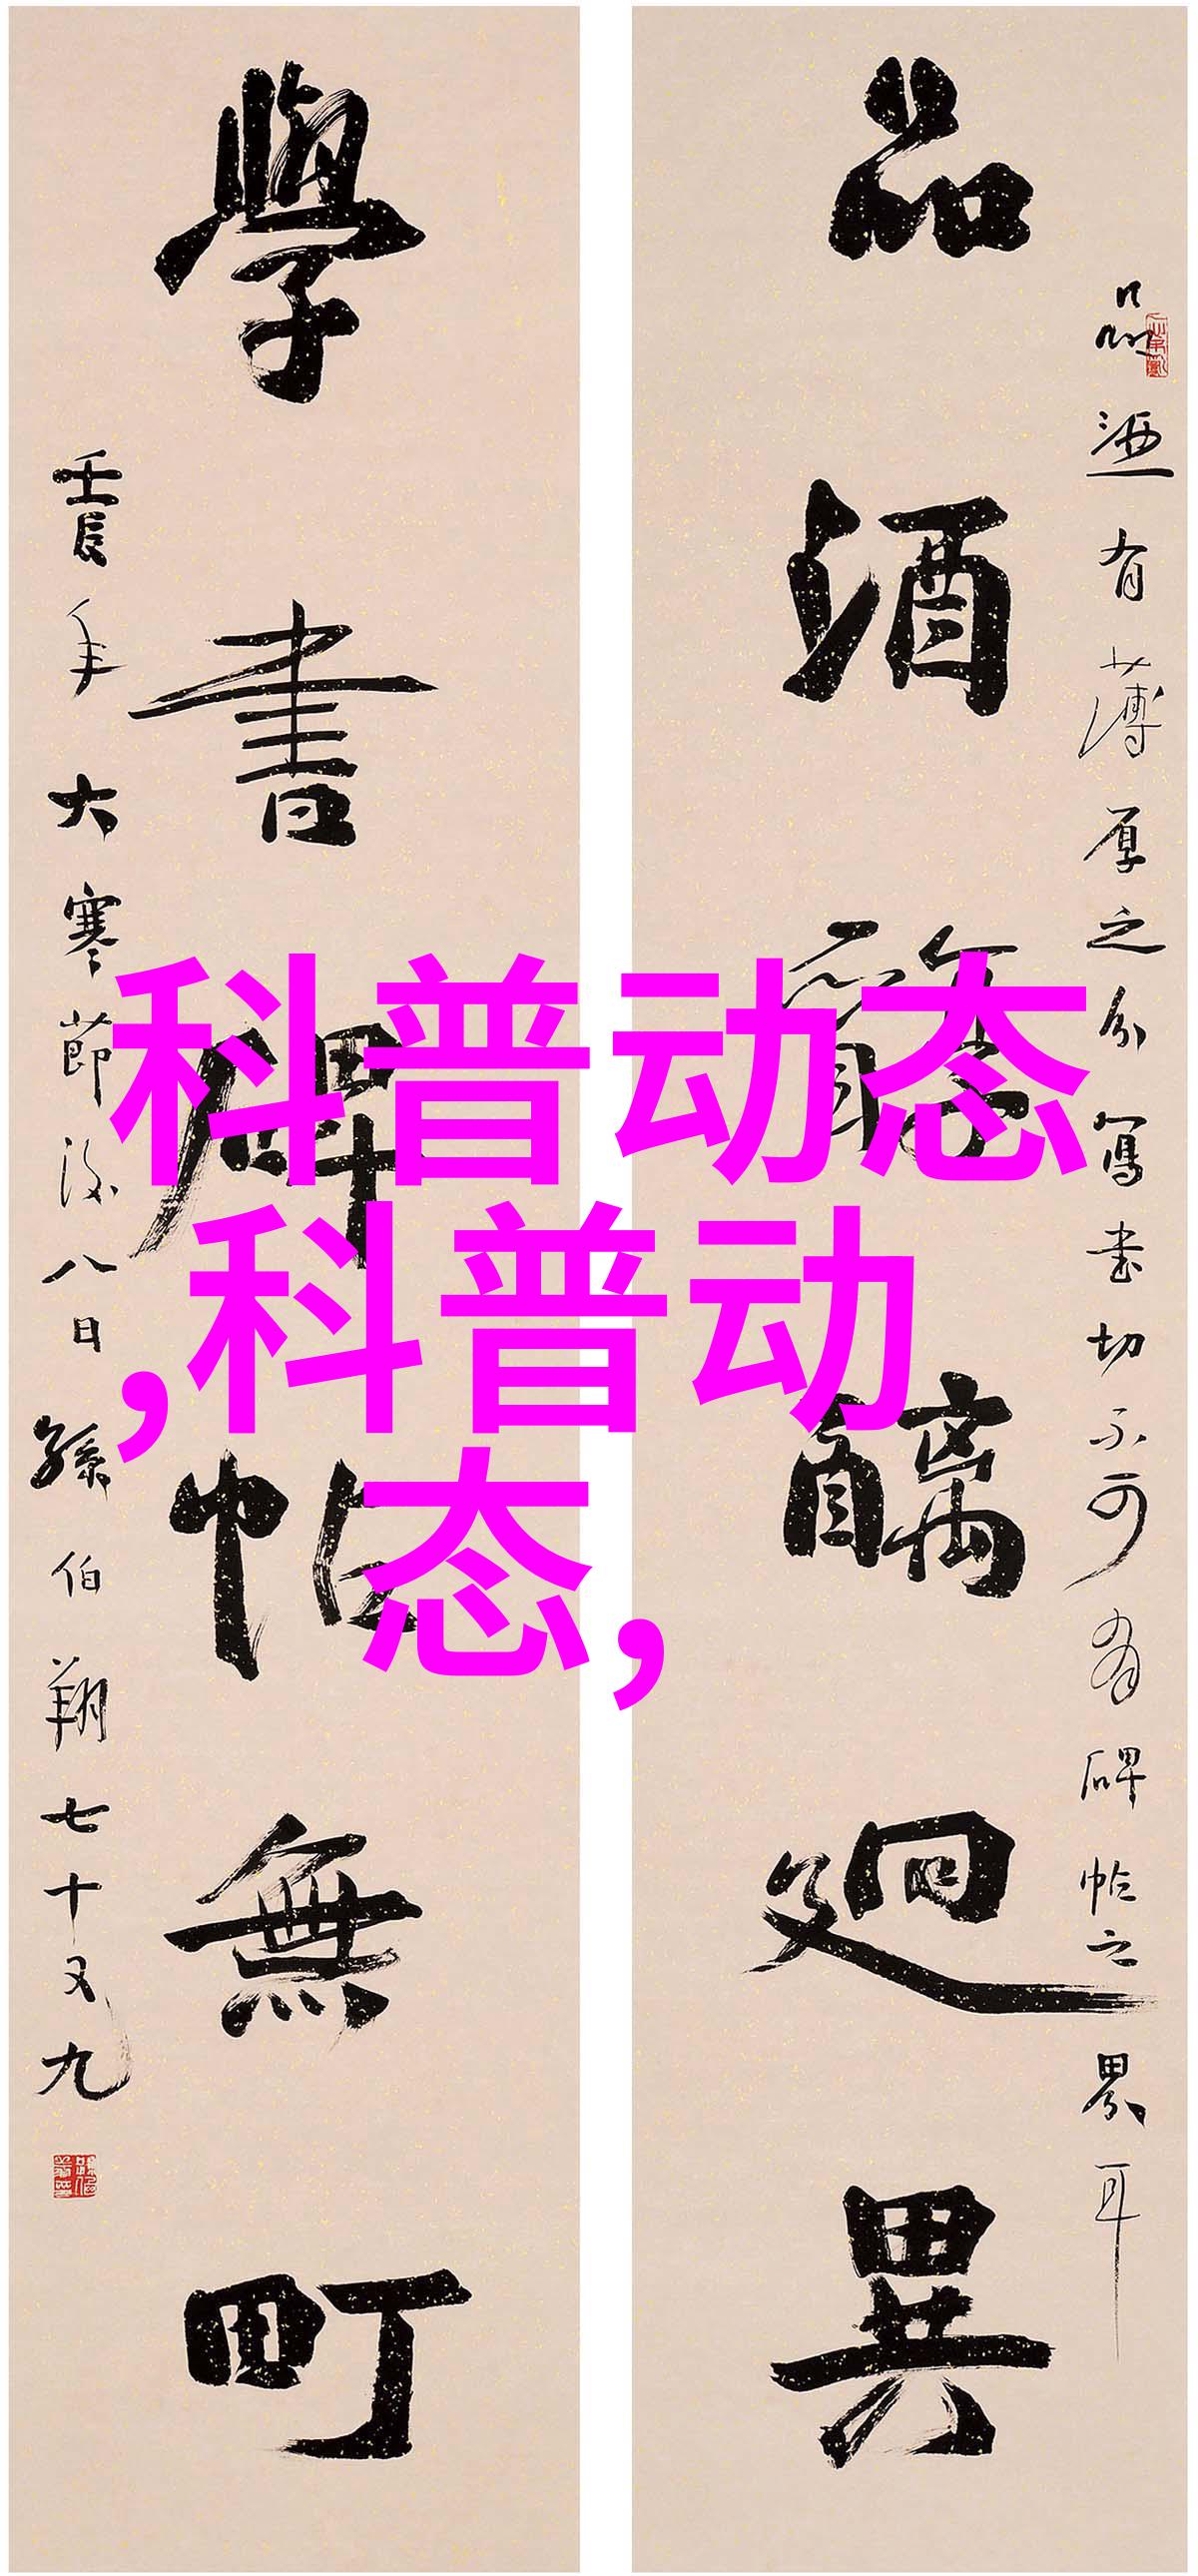 品酒醇醨迥異
品酒有薄厚之分寫書切不可有碑帖之界耳
學書碑帖無町
壬辰年大寒節後八日孫伯翔七十又九
科普动态
,科普动
态,